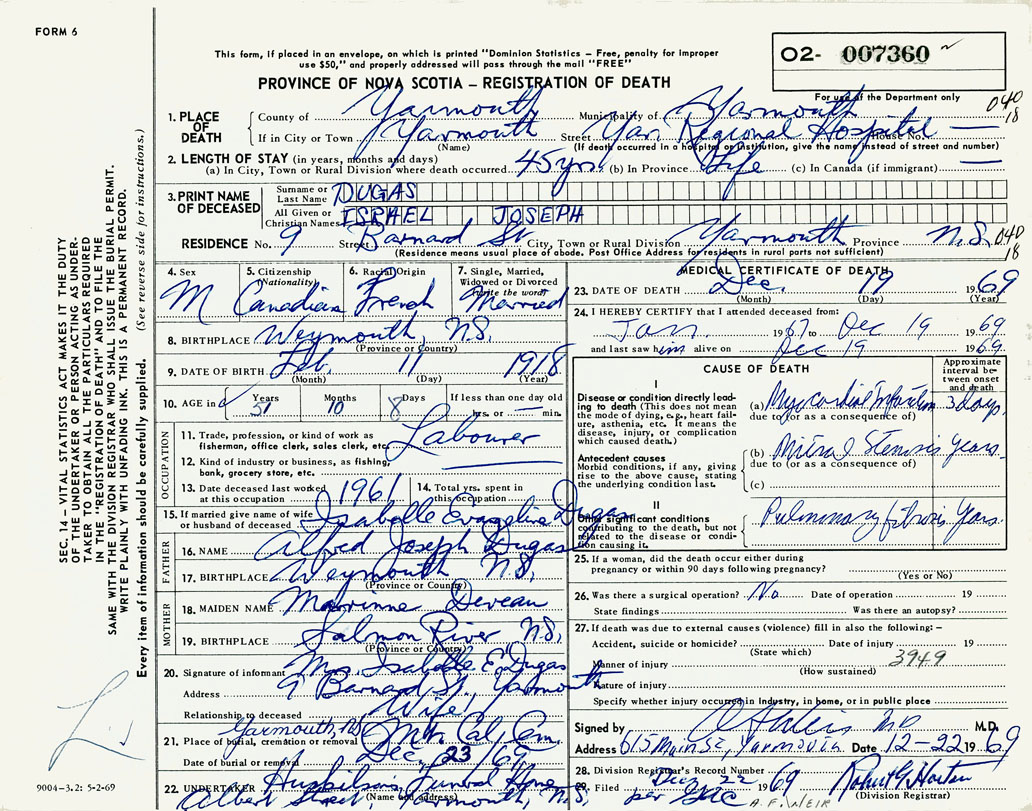 FORM 6
This form, if placed in an envelope, on which is printed "Dominion Statistics – Free, penalty for improper
use $50," and properly addressed will pass through the mail "FREE"
02- 007360
PROVINCE OF NOVA SCOTIA – REGISTRATION OF DEATH
For use of the Department only
040
18
1. PLACE OF DEATH
County of Yarmouth Municipality of Yarmouth
If in City or Town Yarmouth Street Yar. Regional Hospital House No. —
(Name) (If death occurred in a hospital or institution, give the name instead of street and number)
2. LENGTH OF STAY (in years, months and days)
(a) In City, Town or Rural Division where death occurred 45 yrs. (b) In Province Life (c) In Canada (if immigrant) —
3. PRINT NAME OF DECEASED
Surname or Last Name DUGAS
All Given or Christian Names ISRAEL JOSEPH
RESIDENCE No. 9 Street Barnard St City, Town or Rural Division Yarmouth Province N.S. 040
18
(Residence means usual place of abode. Post Office Address for residents in rural parts not sufficient)
4. Sex M
5. Citizenship (Nationality) Canadian
6. Racial Origin French
7. Single, Married, Widowed or Divorced (write the word) Married
8. BIRTHPLACE Weymouth, N.S.
(Province or Country)
9. DATE OF BIRTH Feb. 11 1918
(Month) (Day) (Year)
10. AGE in Years 51 Months 10 Days 8 If less than one day old
hrs. or — min.
OCCUPATION
11. Trade, profession, or kind of work as fisherman, office clerk, sales clerk, etc. Labourer
12. Kind of industry or business, as fishing, bank, grocery store, etc. —
13. Date deceased last worked at this occupation 1961
14. Total yrs. spent in this occupation
15. If married give name of wife or husband of deceased Isabelle Evageline Dugas
FATHER
16. NAME Alfred Joseph Dugas
17. BIRTHPLACE Weymouth N.S.
(Province or Country)
MOTHER
18. MAIDEN NAME Marinne Deveau
19. BIRTHPLACE Salmon River N.S.
(Province or Country)
20. Signature of informant Mrs. Isabelle E. Dugas
Address 9 Barnard St. Yarmouth
Relationship to deceased Wife
Yarmouth, NS
21. Place of burial, cremation or removal Mt. Cal. Cem.
Date of burial or removal Dec. 23/69
22. UNDERTAKER Funeral Home
Albert Street, Yarmouth, N.S.
(Name and address)
MEDICAL CERTIFICATE OF DEATH
23. DATE OF DEATH Dec. 19 1969
(Month) (Day) (Year)
24. I HEREBY CERTIFY that I attended deceased from:
Jan 1967 to Dec 19 1969
and last saw him alive on Dec 19 1969.
CAUSE OF DEATH
Approximate interval between onset and death
I
Disease or condition directly leading to death (This does not mean the mode of dying, e.g., heart failure, asthenia, etc. It means the disease, injury, or complication which caused death.)
(a) Myocardial Infarction 3 days
due to (or as a consequence of)
Antecedent causes
Morbid conditions, if any, giving rise to the above cause, stating the underlying condition last.
(b) Mitral Stenosis years.
due to (or as a consequence of)
(c)
II
Other significant conditions contributing to the death, but not related to the disease or condition causing it.
Pulmonary fibrosis Years.
25. If a woman, did the death occur either during
pregnancy or within 90 days following pregnancy?
(Yes or No)
26. Was there a surgical operation? No Date of operation 19
State findings Was there an autopsy?
27. If death was due to external causes (violence) fill in also the following: –
Accident, suicide or homicide? Date of injury 19
(State which) 3949
Manner of injury
(How sustained)
Nature of injury
Specify whether injury occurred in industry, in home, or in public place
Signed by MD M.D.
Address 615 Main St, Yarmouth Date 12-22 1969
28. Division Registrar's Record Number
29. Filed Dec 22 1969 Robert G. Horton
per
A.F. WEIR
(Division Registrar)
SEC. 14 – VITAL STATISTICS ACT MAKES IT THE DUTY
OF THE UNDERTAKER OR PERSON ACTING AS UNDER-
TAKER TO OBTAIN ALL THE PARTICULARS REQUIRED
IN THE "REGISTRATION OF DEATH" AND TO FILE THE
SAME WITH THE DIVISION REGISTRAR WHO SHALL ISSUE THE BURIAL PERMIT.
WRITE PLAINLY WITH UNFADING INK. THIS IS A PERMANENT RECORD.
Every item of information should be carefully supplied. (See reverse side for instructions.)
9004–3.2: 5-2-69